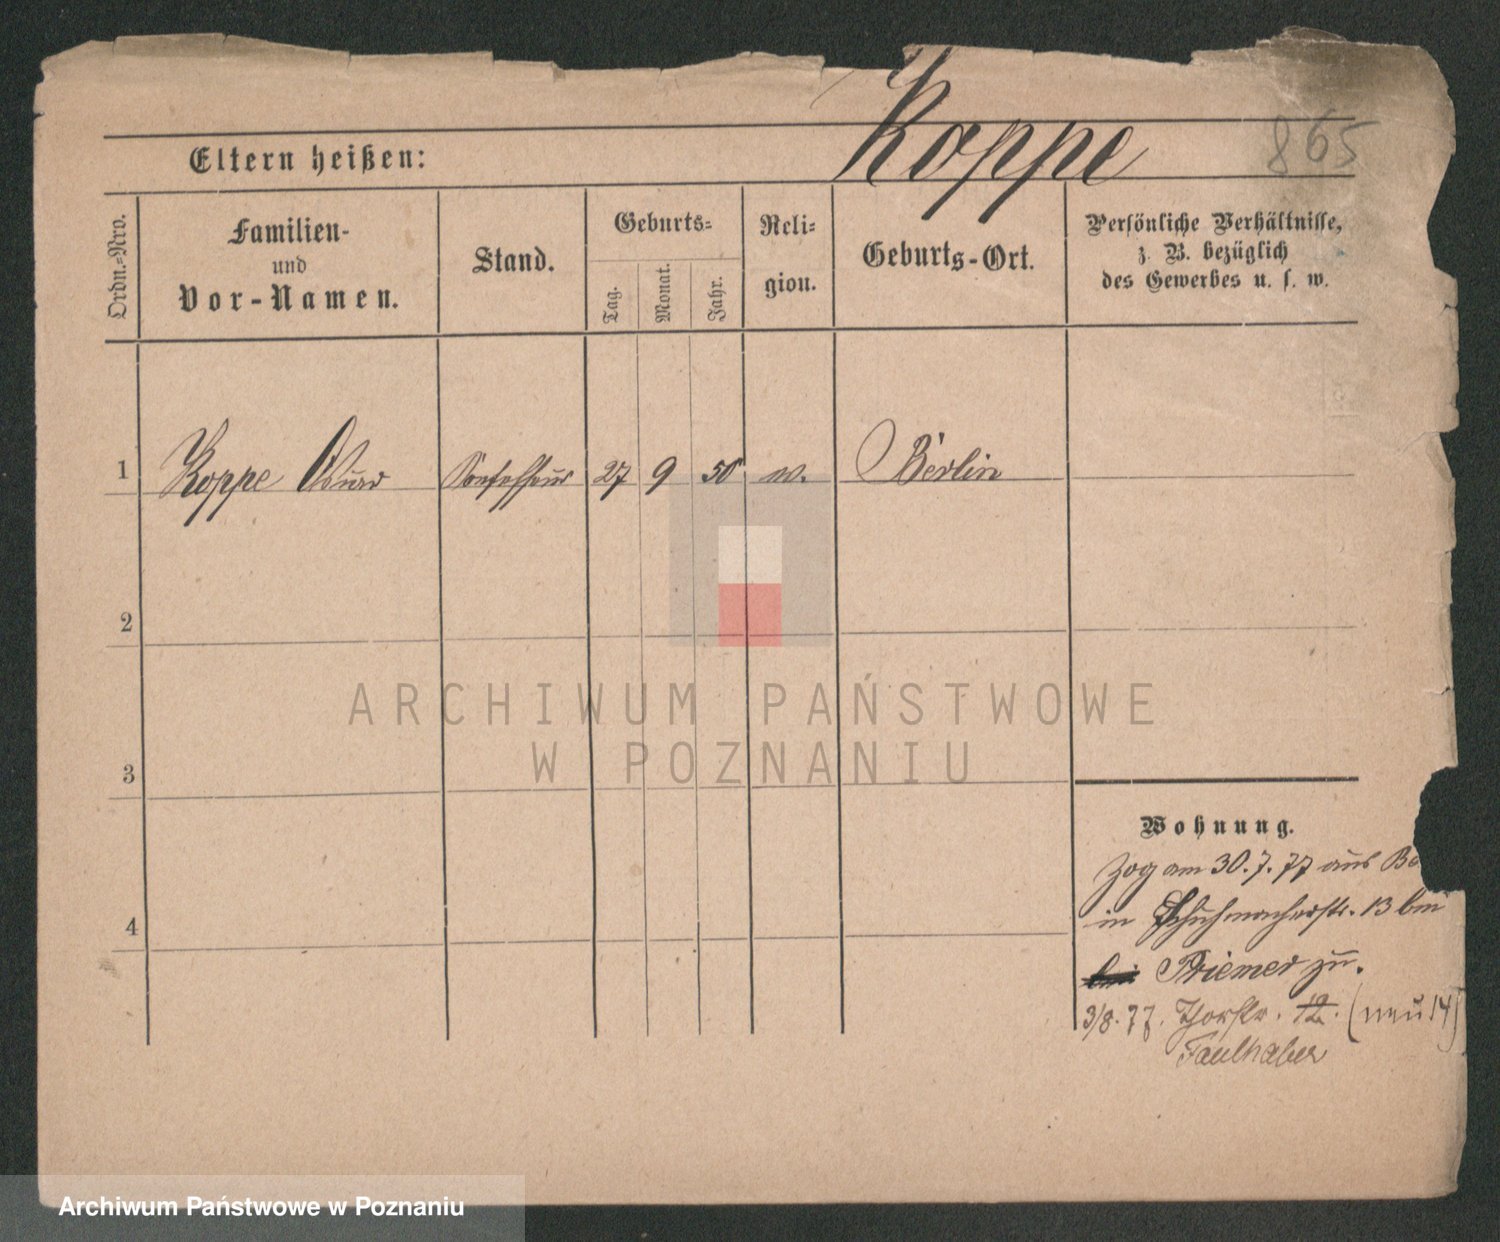 Koppe
865
Eltern heißen:
Ordn.-Nro.
Familien-
und
Vor-Namen.
Stand.
Geburts-
Tag.
Monat.
Jahr.
Reli-
gion.
Geburts-Ort.
Persönliche Verhältnisse,
z. B. bezüglich
des Gewerbes u. s. w.
1 Koppe 27 9 50 Berlin
2
3
4
Wohnung.
Zog am 30.7.77 aus
in Schuhmacherstr. 13 bei
bei Priemer zu.
3/8.77. Thorstr. (neu 14)
Faulhaber
ARCHIWUM PAŃSTWOWE
W POZNANIU
Archiwum Państwowe w Poznaniu